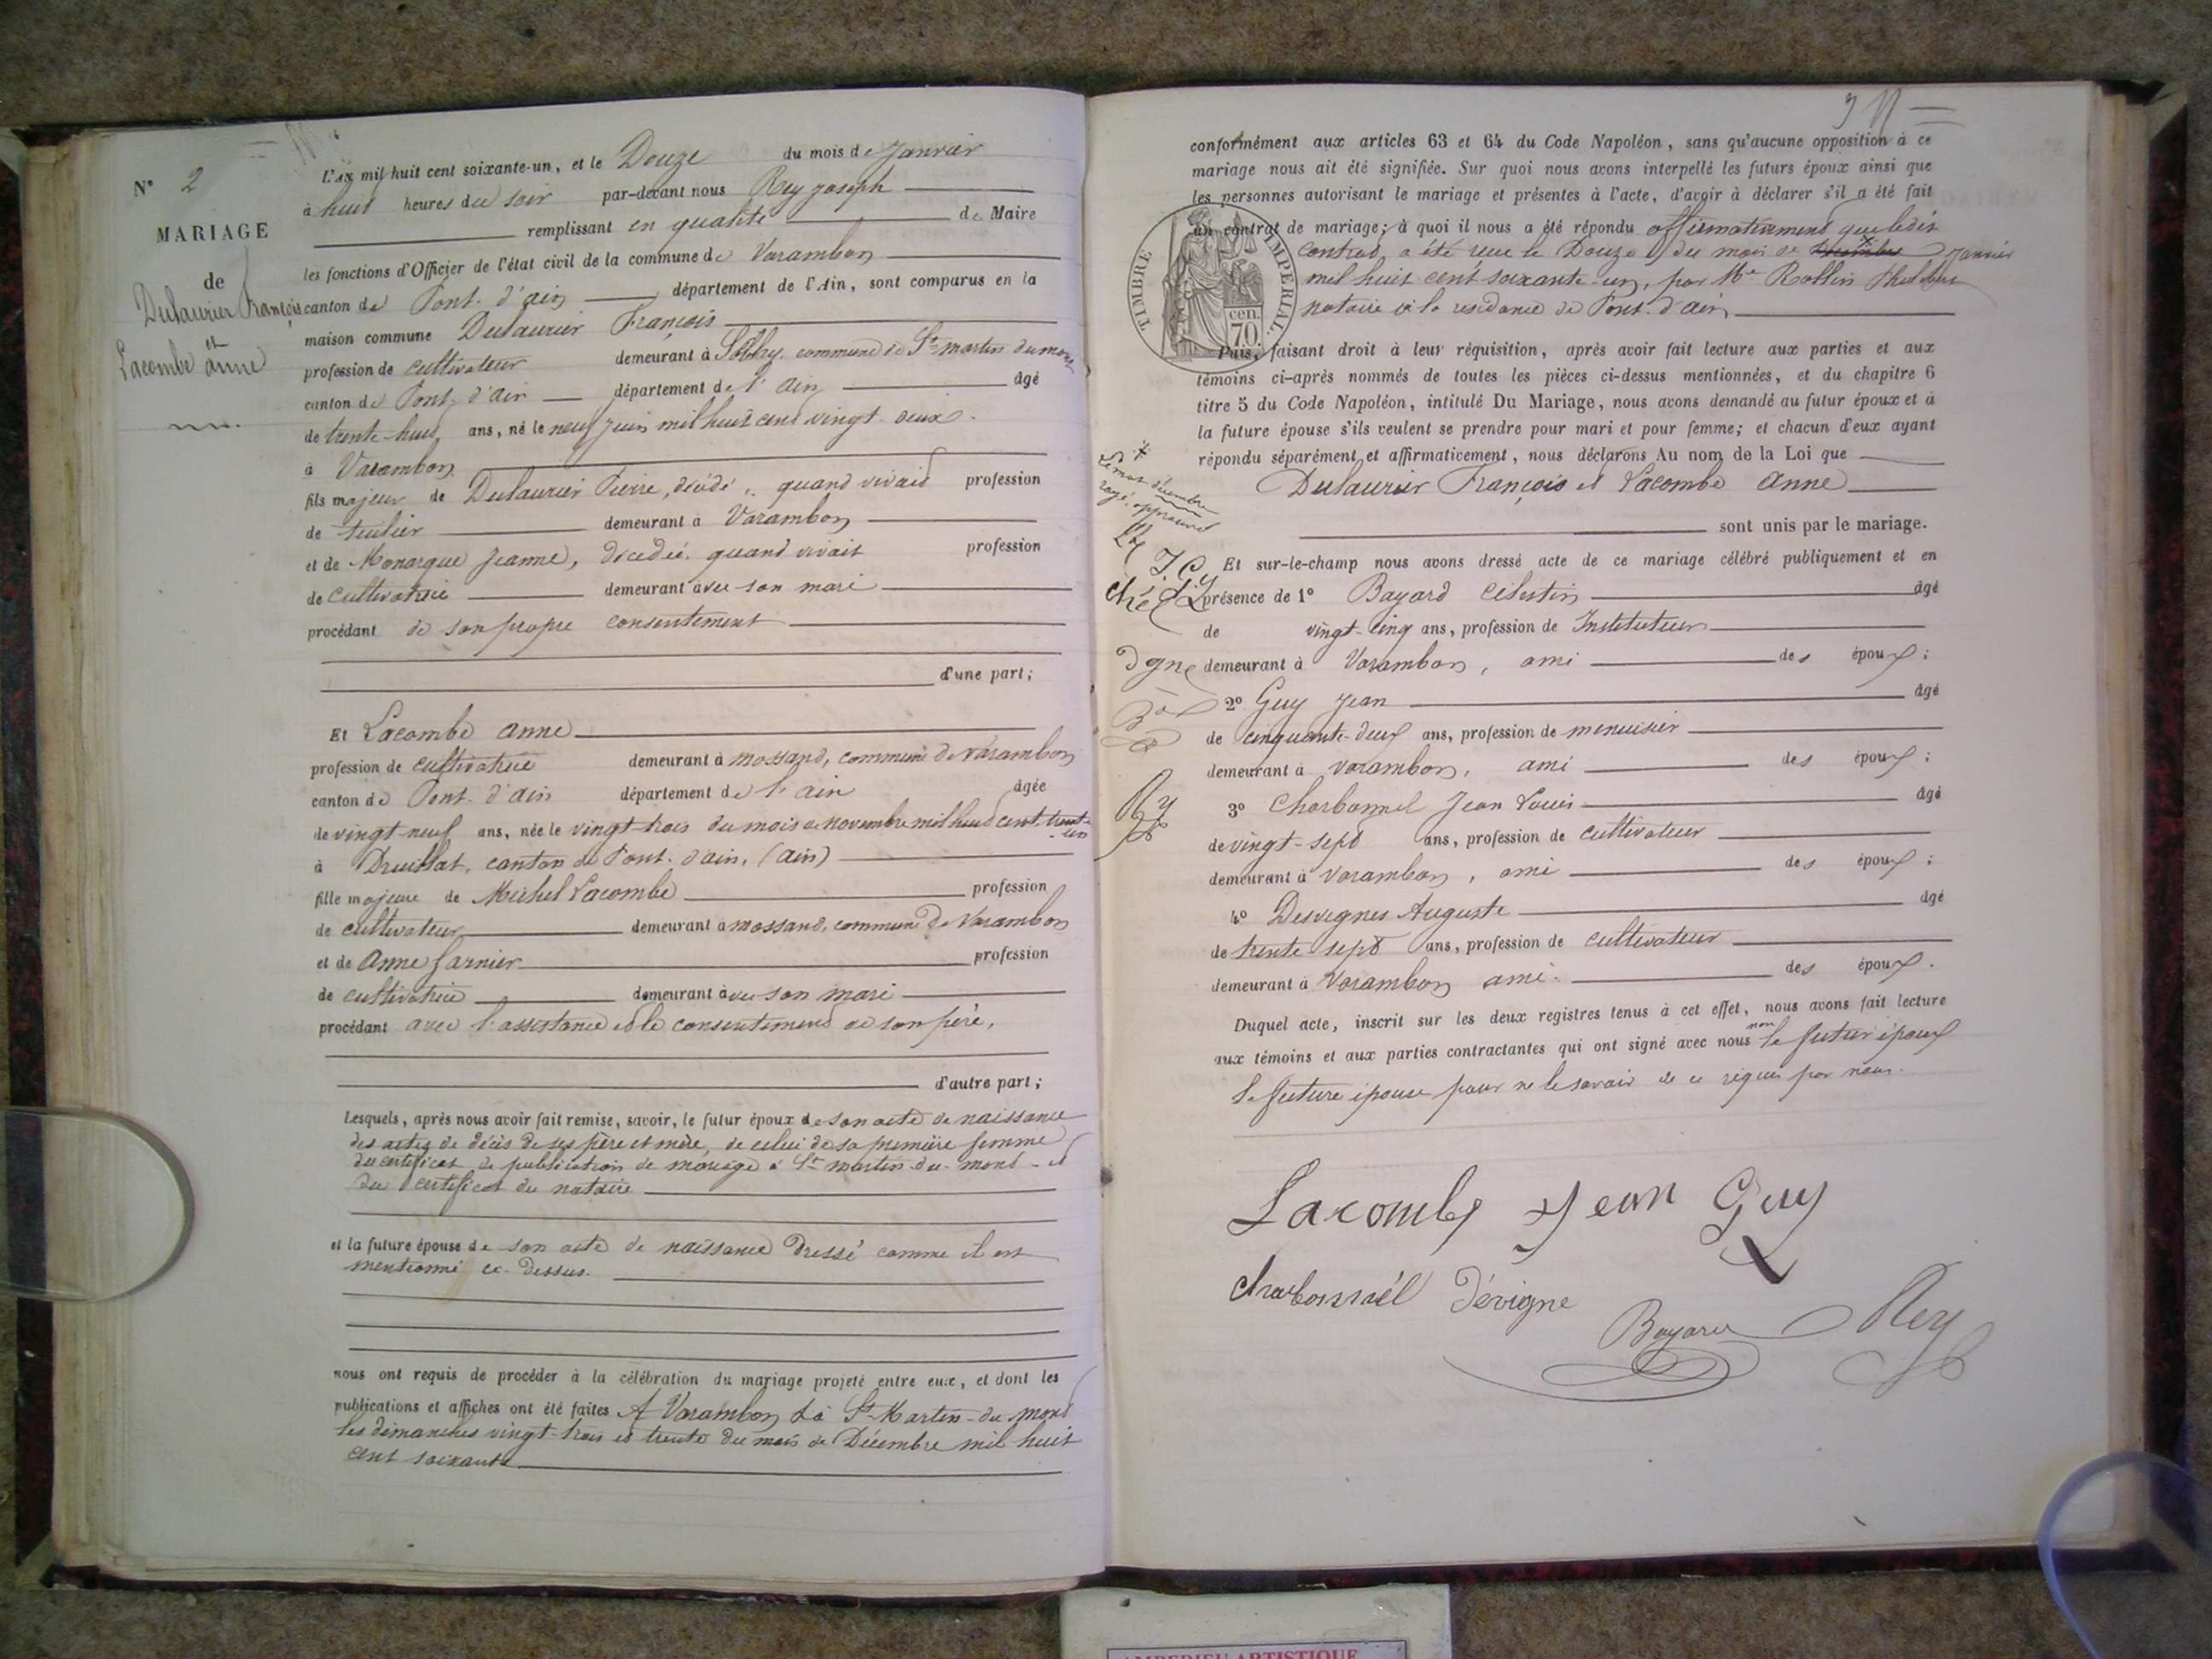 N° 2
MARIAGE
de
Dulaurier François
et
Lacombe anne
L'an mil huit cent soixante-un, et le Douze du mois de Janvier
à huit heures du soir par-devant nous Rey joseph
remplissant en qualité de Maire
les fonctions d'Officier de l'état civil de la commune de Varambon
canton de Pont-d'ain département de l'Ain, sont comparus en la
maison commune Dulaurier François
profession de cultivateur demeurant à commune de St martin du mont
canton de Pont-d'ain département de l'ain âgé
de trente-huit ans, né le neuf Juin mil huit cent vingt-deux
à Varambon
fils majeur de Dulaurier Pierre, décédé, quand vivait profession
de tuilier demeurant à Varambon
et de Monarque Jeanne, décédée quand vivait profession
de cultivatrice demeurant avec son mari
procédant de son propre consentement
d'une part;
Et Lacombe anne
profession de cultivatrice demeurant à mossand, commune de Varambon
canton de Pont-d'ain département de l'ain âgée
de vingt-neuf ans, née le vingt-trois du mois de novembre mil huit cent trente-un
à Druillat, canton de Pont-d'ain, (ain)
fille majeure de Michel Lacombe profession
de cultivateur demeurant à mossand, commune de Varambon
et de Anne Garnier profession
de cultivatrice demeurant avec son mari
procédant avec l'assistance et le consentement de son père,
d'autre part;
Lesquels, après nous avoir fait remise, savoir, le futur époux de son acte de naissance
des actes de décès de ses père et mère, de celui de sa première femme
du certificat de publication de mariage à St martin-du-mont et
du certificat du notaire
et la future épouse de son acte de naissance dressé comme il est
mentionné ci-dessus.
nous ont requis de procéder à la célébration du mariage projeté entre eux, et dont les
publications et affiches ont été faites A Varambon & à St-Martin-du-mont
les dimanches vingt-trois et trente du mois de Décembre mil huit
cent soixante
conformément aux articles 63 et 64 du Code Napoléon, sans qu'aucune opposition à ce
mariage nous ait été signifiée. Sur quoi nous avons interpellé les futurs époux ainsi que
les personnes autorisant le mariage et présentes à l'acte, d'avoir à déclarer s'il a été fait
un contrat de mariage; à quoi il nous a été répondu affirmativement que ledit
contrat a été reçu le Douze du mois de décembre Janvier
mil huit cent soixante-un, par Me Rollin Philibert
notaire à la résidence de Pont-d'ain
TIMBRE IMPERIAL
70 cen.
Puis, faisant droit à leur réquisition, après avoir fait lecture aux parties et aux
témoins ci-après nommés de toutes les pièces ci-dessus mentionnées, et du chapitre 6
titre 5 du Code Napoléon, intitulé Du Mariage, nous avons demandé au futur époux et à
la future épouse s'ils veulent se prendre pour mari et pour femme; et chacun d'eux ayant
répondu séparément et affirmativement, nous déclarons Au nom de la Loi que
Dulaurier François et Lacombe Anne
sont unis par le mariage.
Le mot décembre
rayé, approuvé
Et sur-le-champ nous avons dressé acte de ce mariage célébré publiquement et en
présence de 1° Bayard Célestin âgé
de vingt-cinq ans, profession de Instituteur
demeurant à Varambon, ami des époux;
2° Guy Jean âgé
de cinquante-deux ans, profession de menuisier
demeurant à Varambon, ami des époux;
3° Charbonnel Jean Louis âgé
de vingt-sept ans, profession de cultivateur
demeurant à Varambon, ami des époux;
4° Desvignes Auguste âgé
de trente sept ans, profession de cultivateur
demeurant à Varambon ami des époux.
Duquel acte, inscrit sur les deux registres tenus à cet effet, nous avons fait lecture
aux témoins et aux parties contractantes qui ont signé avec nous non le futur époux
la future épouse pour ne le savoir de ce requis par nous.
Lacombe Jean Guy
charbonnaél dévigne
Bayard Rey
AMBERIEU ARTISTIQUE